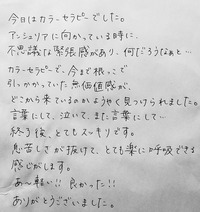 今日はカラーセラピーでした。
アシュリアに向かっている時に、
不思議な緊張感があり、何だろうなぁと…
カラーセラピーで、今まで根っこで
引っかかっていた無価値感が、
どこから来ているのかようやく見つけられました。
言葉にして、泣いて、また言葉にして…
終了後、とてもスッキリです。
息苦しさが抜けて、とても楽に呼吸できる
感じがします。
あ〜軽い!! 良かった!!
ありがとうございました。